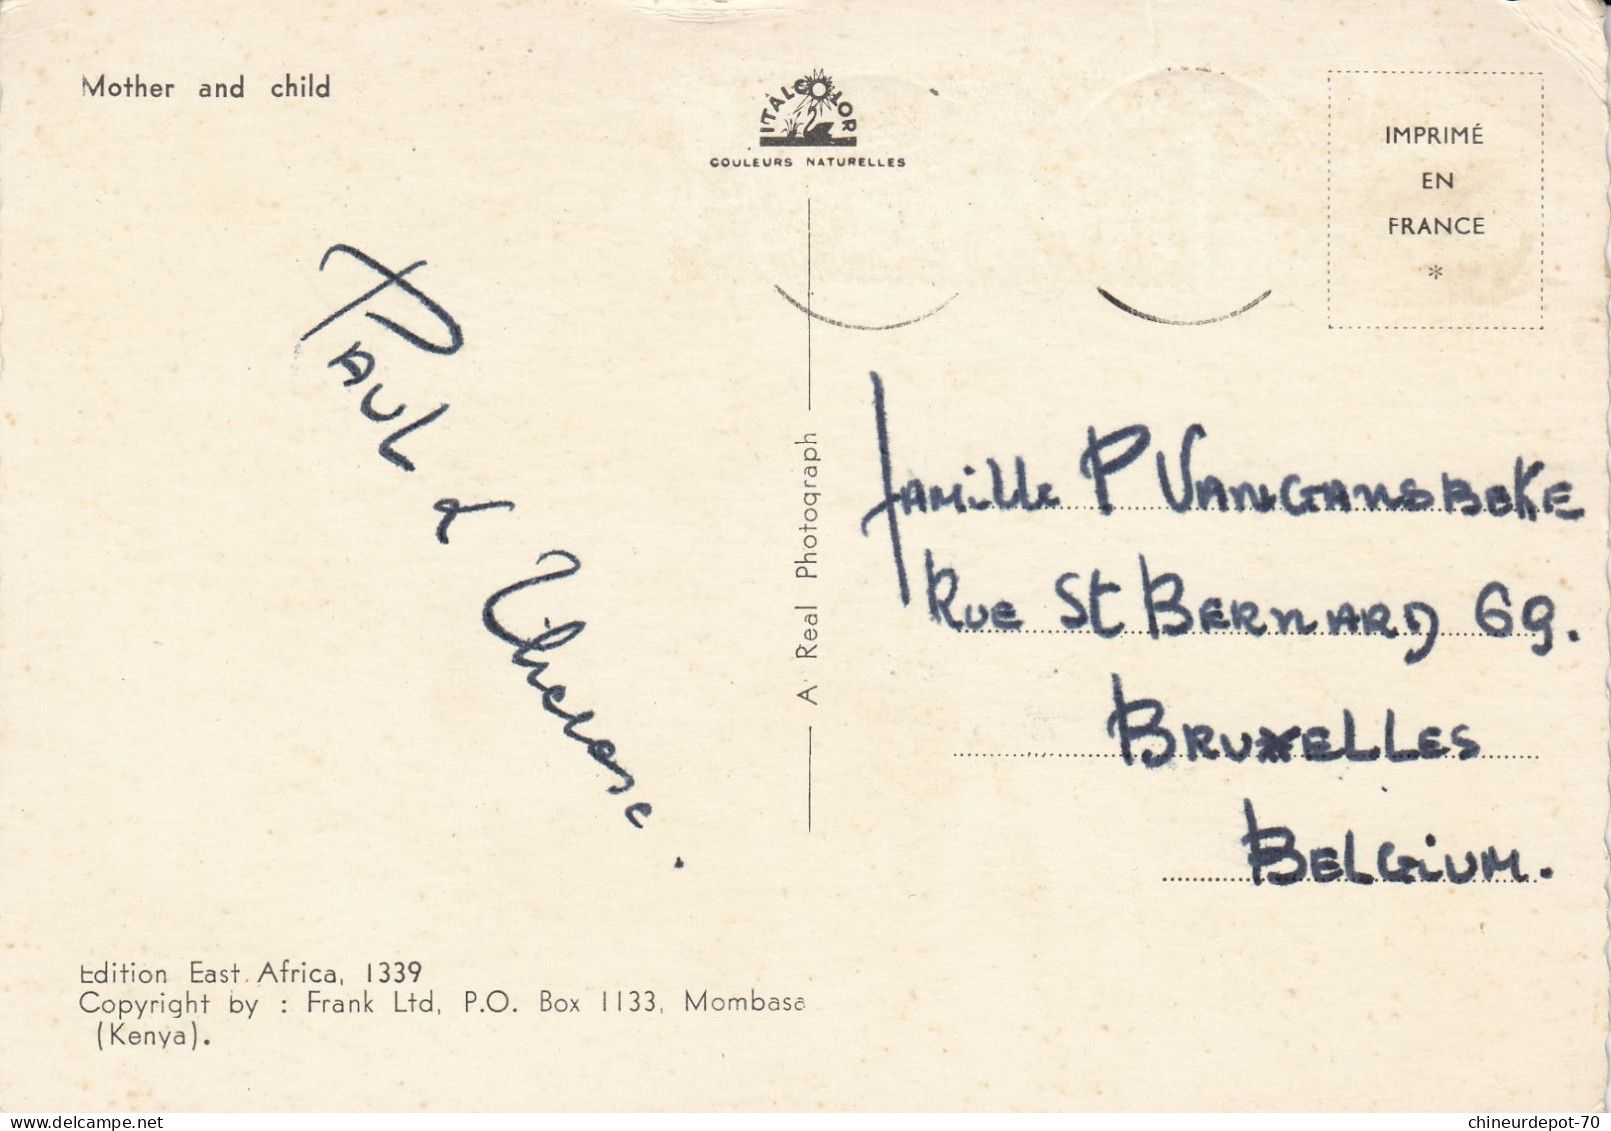 Mother and child
ITALCOLOR
COULEURS NATURELLES
IMPRIMÉ
EN
FRANCE
*
Paul
&
Therese.
A Real Photograph
Famille P Vangansbeke
Rue St Bernard 69.
Bruxelles
Belgium.
Edition East Africa, 1339
Copyright by : Frank Ltd, P.O. Box 1133, Mombasa
(Kenya).
chineurdepot-70